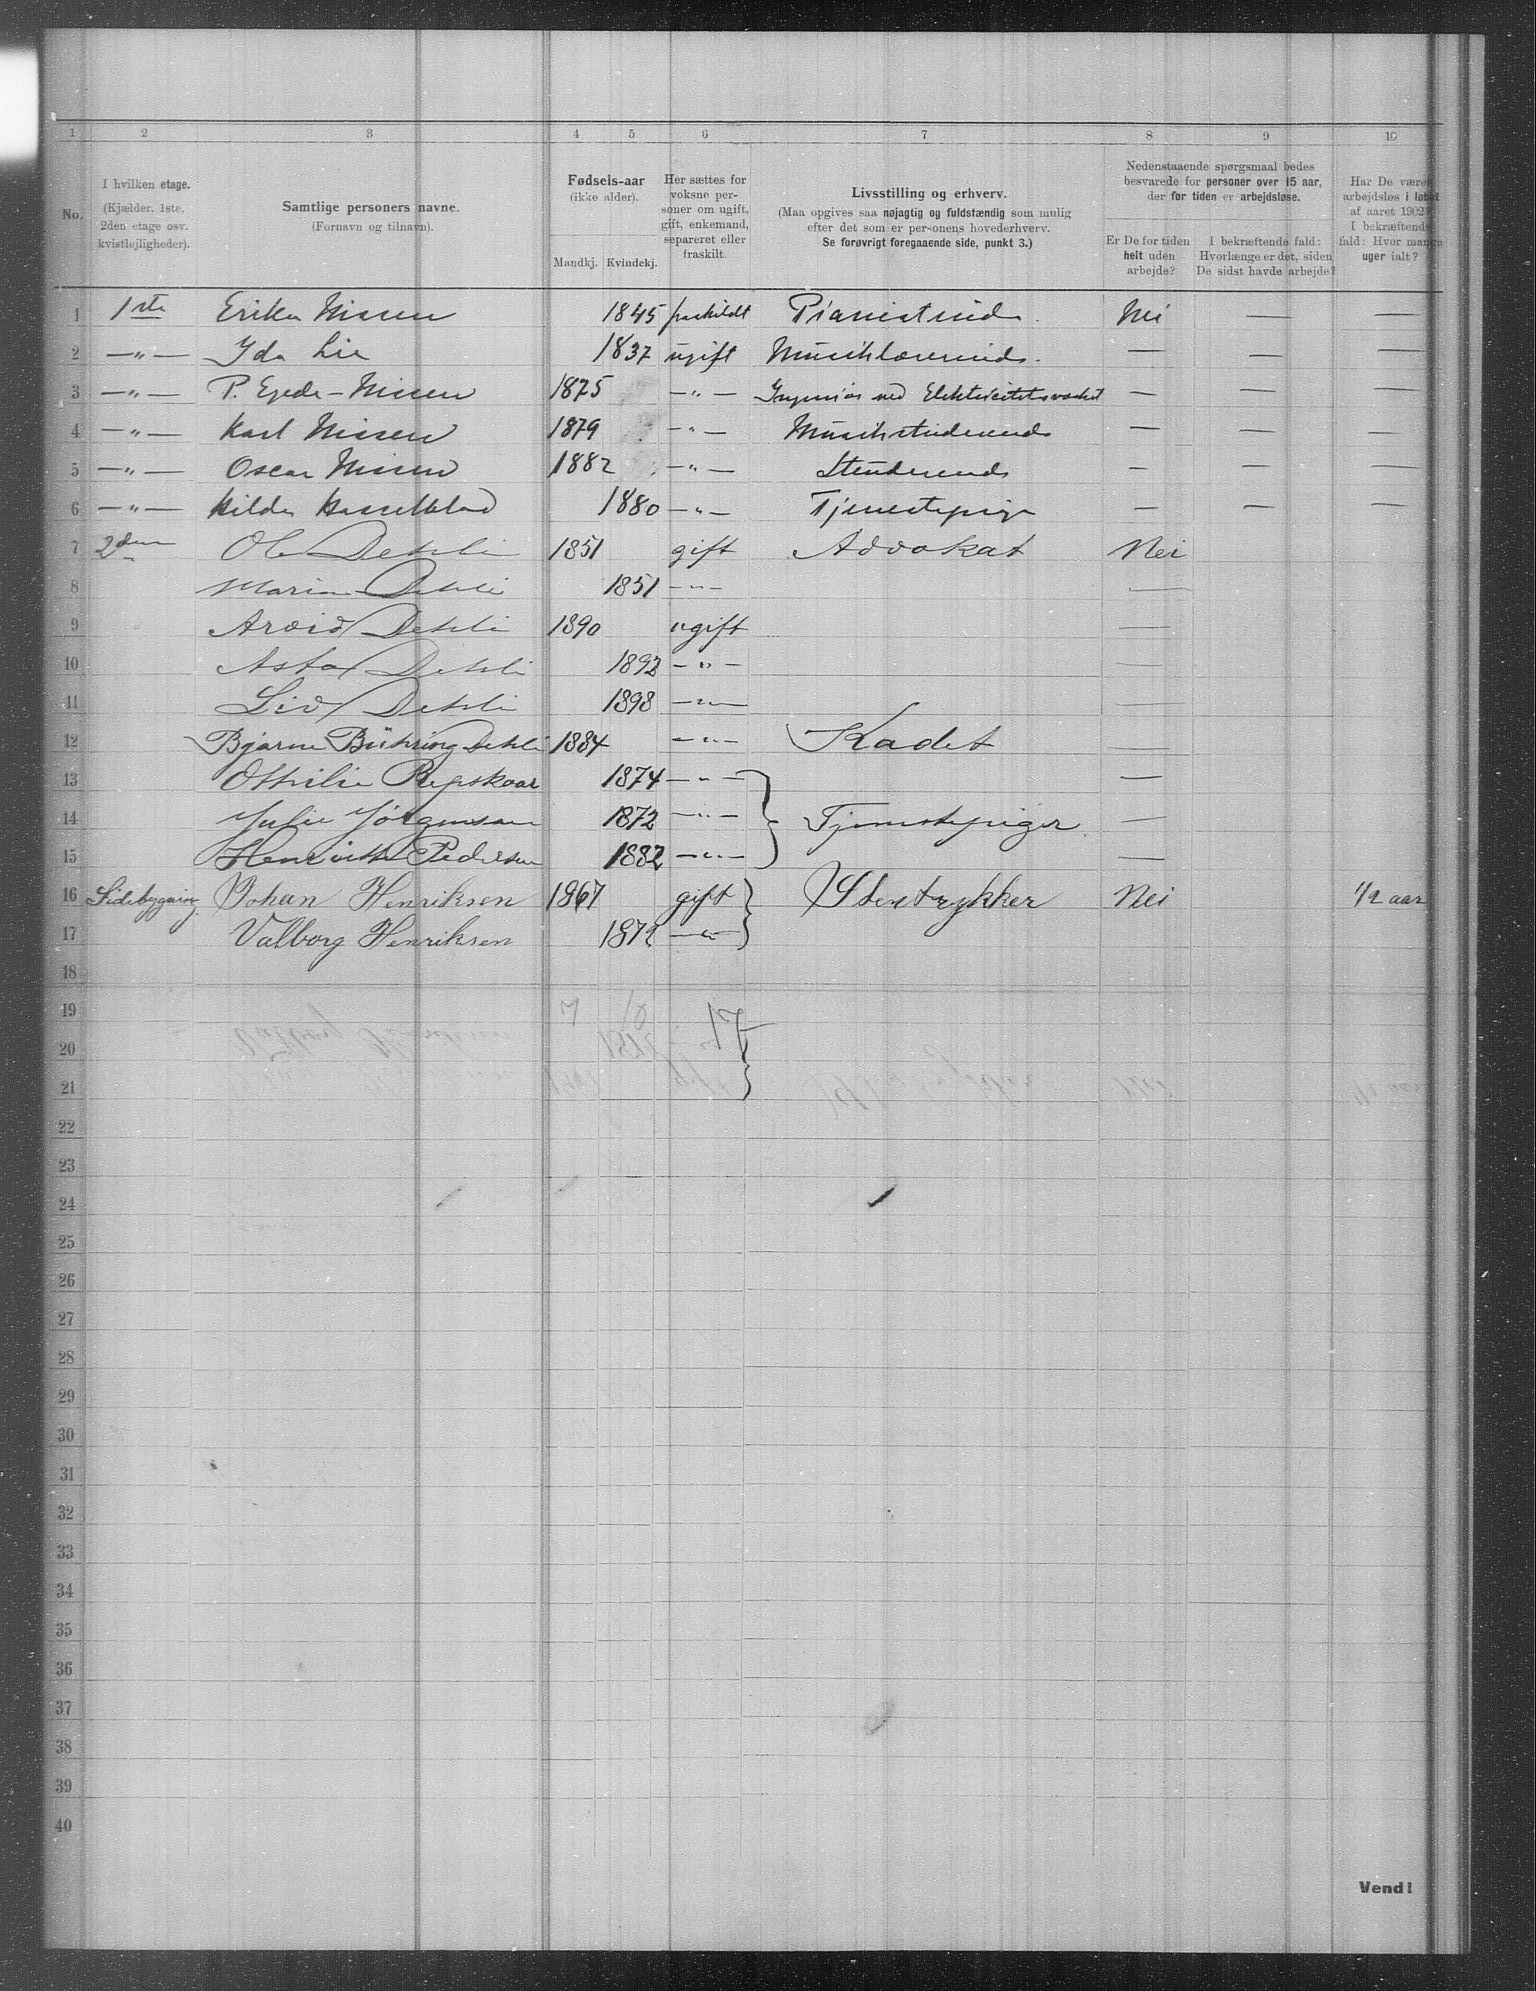 1 2 3 4 5 6 7 8 9 10
No.
I hvilken etage.
(Kjælder. 1ste,
2den etage osv.
kvistlejligheder).
Samtlige personers navne.
(Fornavn og tilnavn).
Fødsels-aar
(ikke alder).
Mandkj. Kvindekj.
Her sættes for
voksne per-
soner om ugift,
gift, enkemand,
separeret eller
fraskilt.
Livsstilling og erhverv.
(Maa opgives saa nøjagtig og fuldstændig som mulig
efter det som er personens hovederhverv.
Se forøvrigt foregaaende side, punkt 3.)
Nedenstaaende spørgsmaal bedes
besvarede for personer over 15 aar,
der for tiden er arbejdsløse.
Er De for tiden
helt uden
arbejde?
I bekræftende fald:
Hvorlænge er det, siden
De sidst havde arbejde?
Har De været
arbejdsløs i løbet
af aaret 1902?
I bekræftende
fald: Hvor mange
uger ialt?
1 1ste Erika Nissen 1845 fraskildt Pianistinde. Nei — —
2 —"— Ida Lie 1837 ugift Musiklærerinde. — — —
3 —"— P. Egede-Nissen 1875 —"— Ingeniør ved Elektricitetsværket — — —
4 —"— Karl Nissen 1879 —"— Musikstuderende — — —
5 —"— Oscar Nissen 1882 —"— Studerende — — —
6 —"— Hilda Hasselblad 1880 —"— Tjenestepige — — —
7 2den Ole Dehli 1851 gift Advokat Nei
8 Marie Dehli 1851 —"— —
9 Arvid Dehli 1890 ugift —
10 Asta Dehli 1892 —"— —
11 Liv Dehli 1898 —"— —
12 Bjarne Bühring Dehli 1884 —"— Kadet —
13 Othilie Repskaar 1874 —"— —
14 Julie Jörgensen 1872 —"— Tjenestepiger —
15 Henriette Pedersen 1882 —"— —
16 Sidebygning Johan Henriksen 1867 gift Stentrykker Nei 1/2 aar
17 Valborg Henriksen 1872 —"—
18
19 7 10 17
20
21
22
23
24
25
26
27
28
29
30
31
32
33
34
35
36
37
38
39
40
Vend!